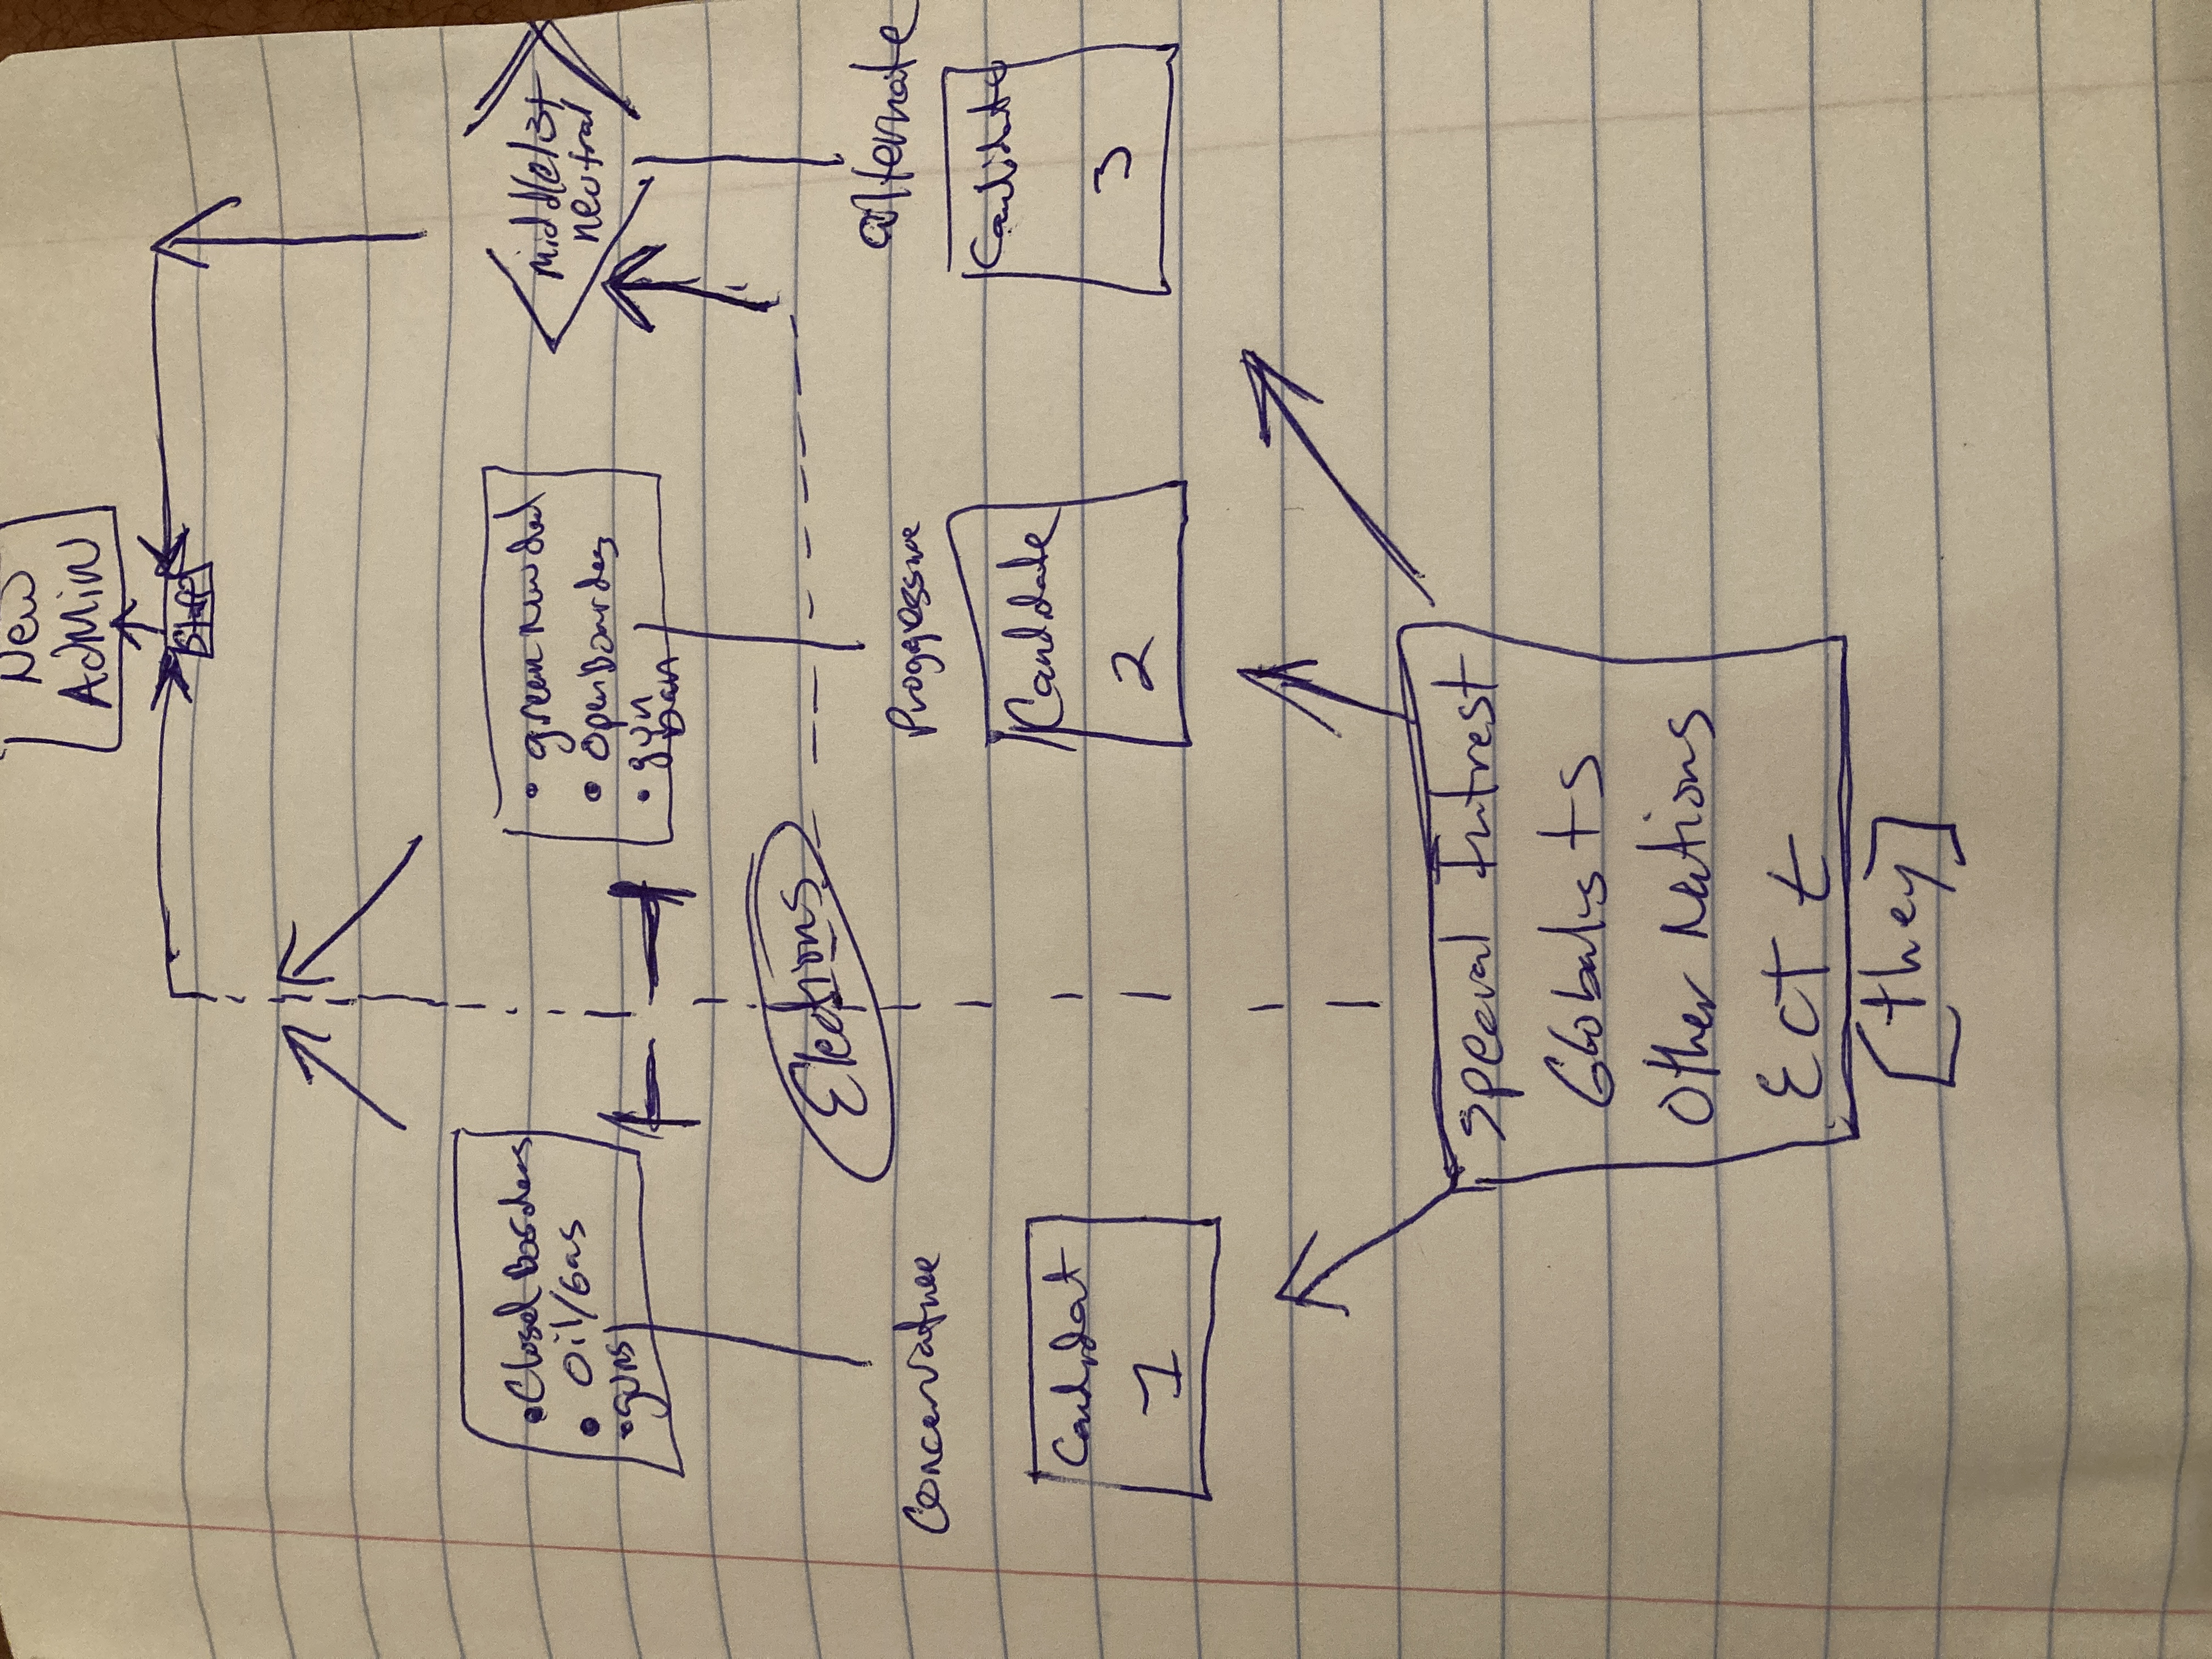 New
Admin
Staff
• Closed borders
• Oil/Gas
• guns
• green new deal
• Open bourdes
• gun
Ban
middle/3t
neutral
Elections
Concervative
Progessive
alternate
Candidat
1
Candidate
2
Candidate
3
Special Intrest
Globalists
Other Nations
Ect t
[they]